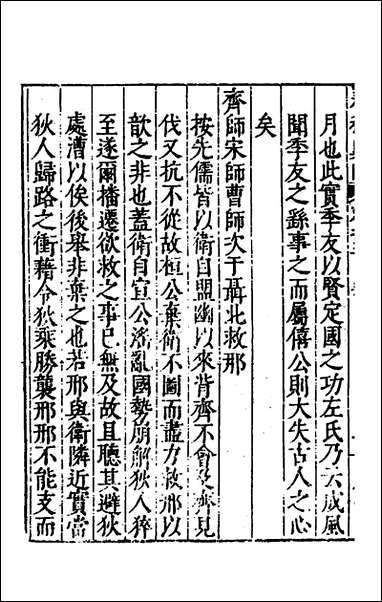 月也此實季友以賢定國之功左氏乃云成風
聞季友之繇事之而屬僖公則大失古人之心
矣
齊師宋師曹師次于聶北救邢
按先儒皆以衛自盟幽以來背齊不會及齊見
伐又抗不從故桓公棄衛不圖而盡力救邢以
歆之非也蓋衛自宣公淫亂國勢崩解狄人猝
至遂爾播遷欲救之事已無及故且聽其避狄
處漕以俟後舉非棄之也若邢與衛隣近實當
狄人歸路之衝藉令狄乘勝襲邢邢不能支而